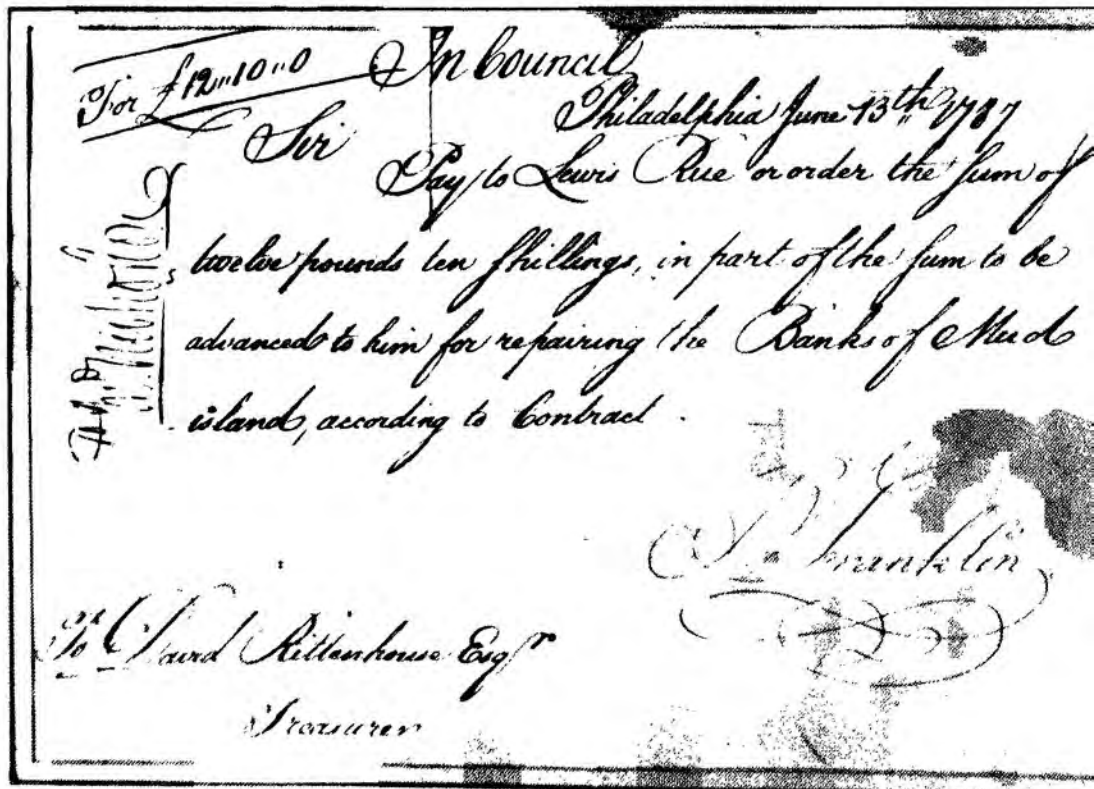 For £12,,10,,0
In Council
Philadelphia June 13th,, 1787
Sir
Pay to Lewis Rue or order the Sum of
twelve pounds ten Shillings, in part of the Sum to be
advanced to him for repairing the Banks of Mud
island, according to Contract.
B Franklin
To David Rittenhouse Esqr
Treasurer